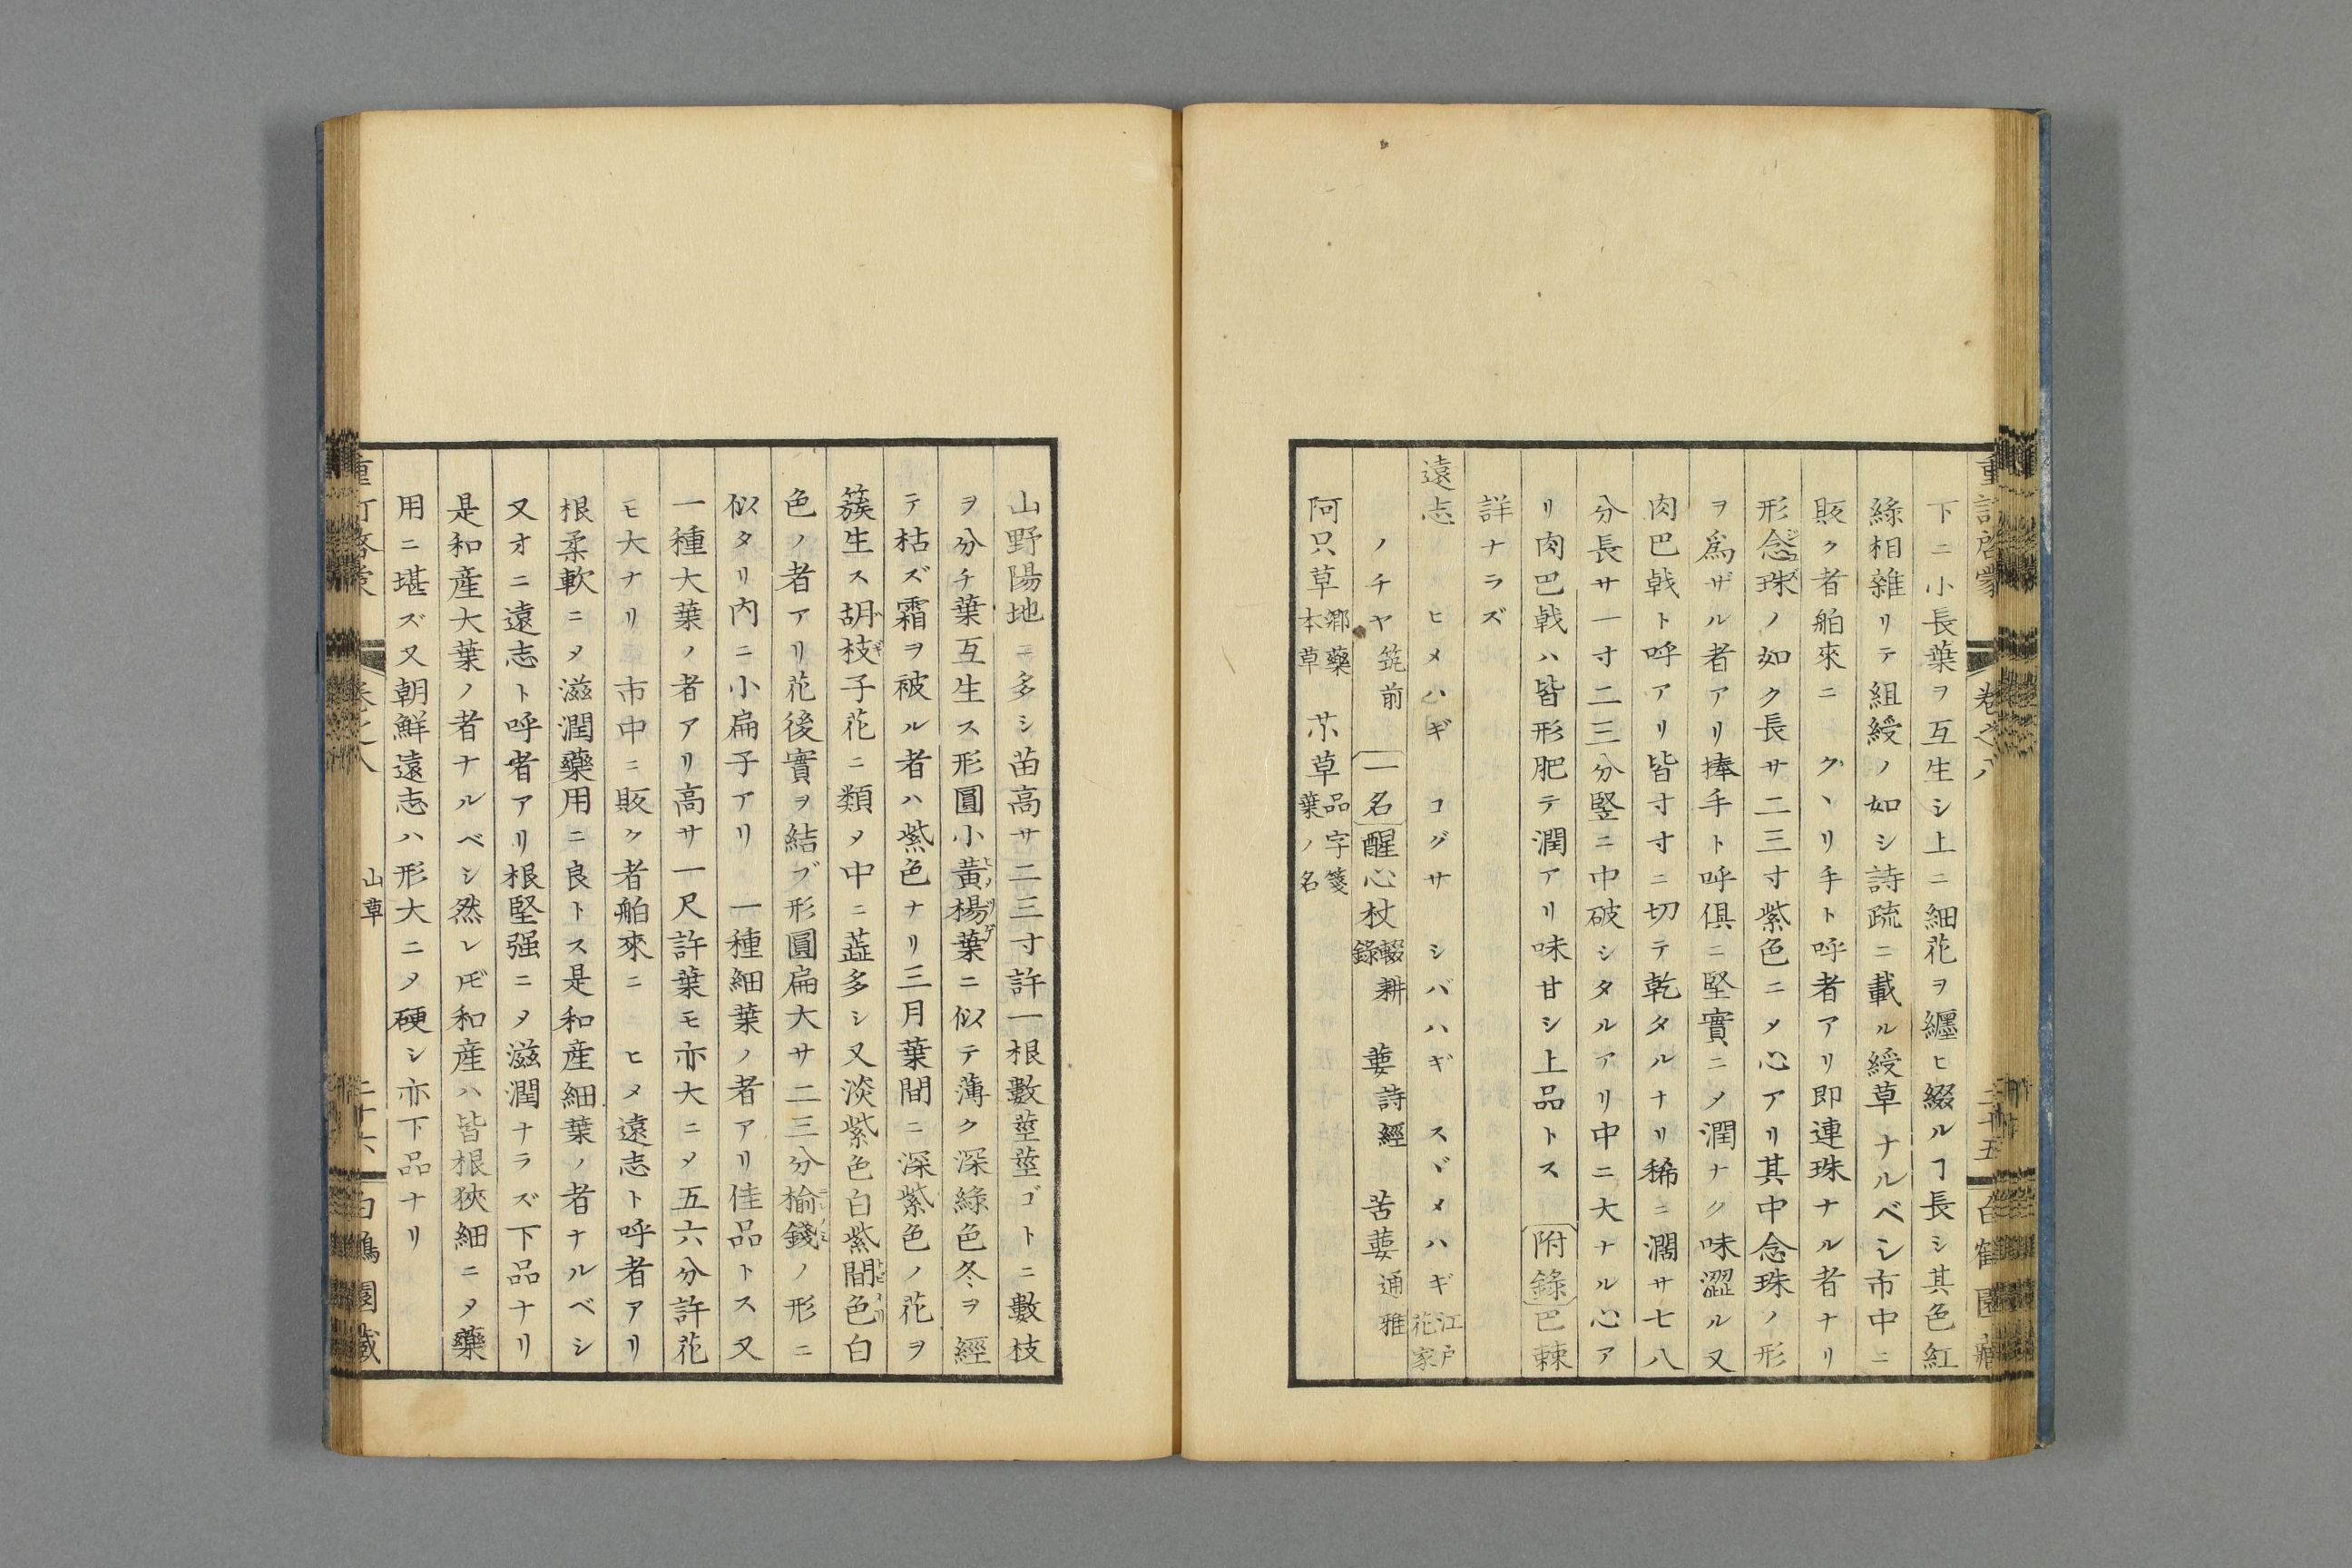 下ニ小長葉ヲ互生シ上ニ細花ヲ纒ヒ綴ルヿ長シ其色紅
綠相雜リテ組綬ノ如シ詩疏ニ載ル綬草ナルベシ市中ニ
販ク者舶來ニ クヽリ手ト呼者アリ即連珠ナル者ナリ
形念珠ノ如ク長サ二三寸紫色ニメ心アリ其中念珠ノ形
ヲ爲ザル者アリ捧手ト呼俱ニ堅實ニメ潤ナク味澀ル又
肉巴戟ト呼アリ皆寸寸ニ切テ乾タルナリ稀ニ濶サ七八
分長サ一寸二三分竪ニ中破シタルアリ中ニ大ナル心ア
リ肉巴戟ハ皆形肥テ潤アリ味甘シ上品トス 附錄 巴棘
詳ナラズ
遠志 ヒメハギ コグサ シバハギ スヾメハギ 江戸花家
ノチヤ 筑前 一名 醒心杖 輟耕錄 葽 詩經 苦葽 通雅
阿只草 鄉藥本草 朩草 品字箋葉ノ名
山野陽地ニ多シ苗高サ二三寸許一根數莖莖ゴトニ數枝
ヲ分チ葉互生ス形圓小黃楊葉ニ似テ薄ク深綠色冬ヲ經
テ枯ズ霜ヲ被ル者ハ紫色ナリ三月葉間ニ深紫色ノ花ヲ
簇生ス胡枝子花ニ類メ中ニ蕋多シ又淡紫色白紫間色白
色ノ者アリ花後實ヲ結ブ形圓扁大サ二三分榆錢ノ形ニ
似タリ内ニ小扁子アリ 一種細葉ノ者アリ佳品トス又
一種大葉ノ者アリ高サ一尺許葉モ亦大ニメ五六分許花
モ大ナリ 市中ニ販ク者舶來ニ ヒメ遠志ト呼者アリ
根柔軟ニメ滋潤藥用ニ良トス是和産細葉ノ者ナルベシ
又オニ遠志ト呼者アリ根堅强ニメ滋潤ナラズ下品ナリ
是和産大葉ノ者ナルベシ然レ𪜈和産ハ皆根狹細ニメ藥
用ニ堪ズ又朝鮮遠志ハ形大ニメ硬シ亦下品ナリ
卷之八
山草